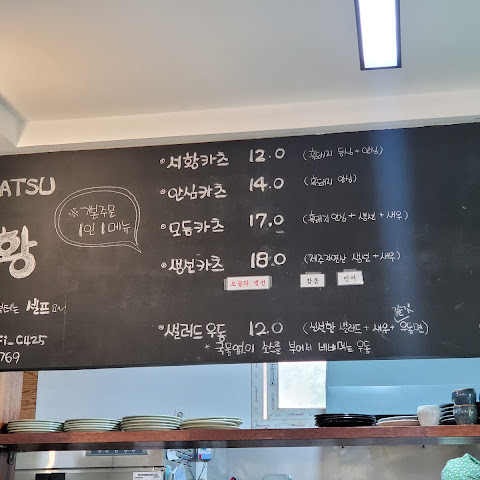 ATSU
황
※기본주문
1인 1메뉴
셀프
Fi_C425
769
◦서황카츠 12.0 (흑돼지 등심+안심)
◦안심카츠 14.0 (흑돼지 안심)
◦모듬카츠 17.0 (흑돼지안심+생선+새우)
◦생선카츠 18.0 (제주자연산 생선+새우)
오늘의 생선
민어
◦샐러드우동 12.0 (신선한 샐러드+새우+우동면)
* 국물없이 소스를 부어서 비벼먹는 우동